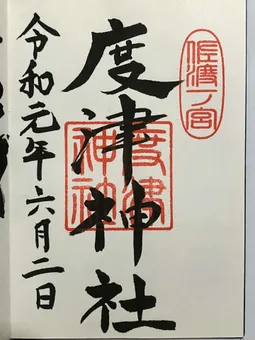 佐渡一ノ宮
度津神社
度津神社
令和元年六月二日